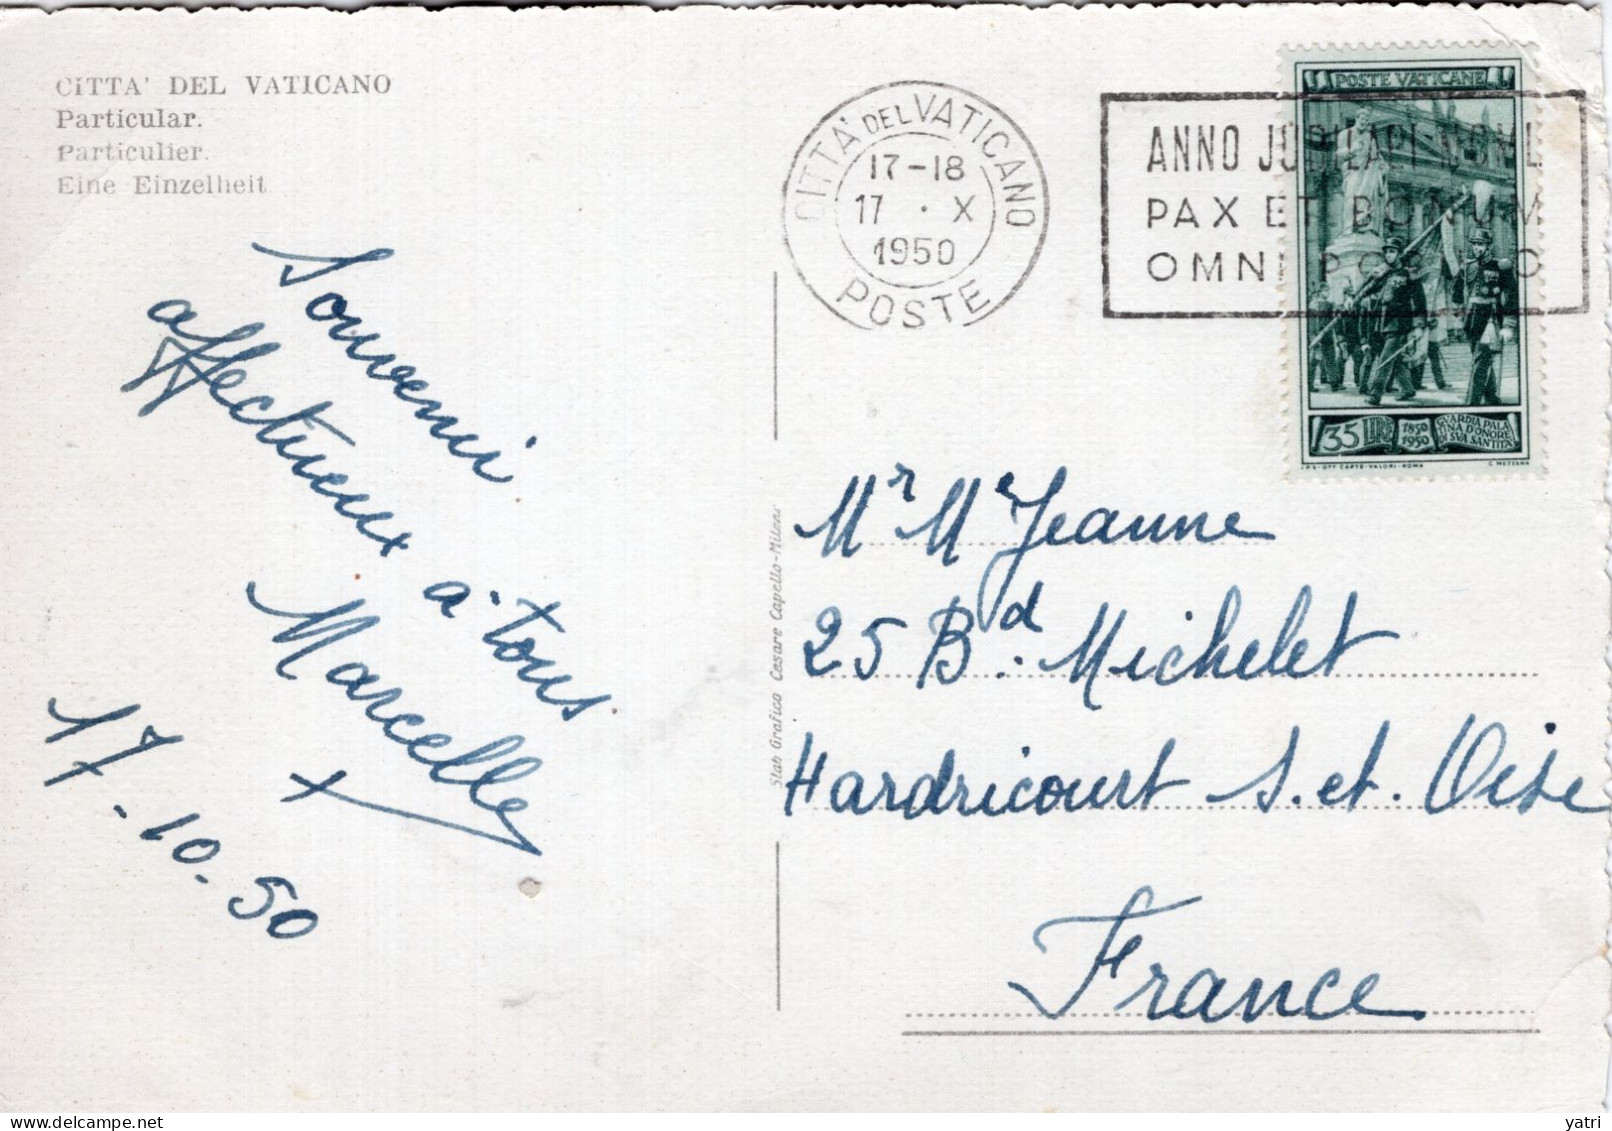 CITTA' DEL VATICANO
Particular.
Particulier.
Eine Einzelheit
Souveni
affectueux
a tous
Marcelle
17-10-50
CITTÀ DEL VATICANO
17-18
17 · X
1950
POSTE
ANNO JUBILAEI NOVI
PAX ET BONUM
OMNI
POSTE VATICANE
35 LIRE
1850
1950
GVARDIA PALA
TINA D'ONORE
DI SVA SANTITÀ
I.P.S-OFF CARTE-VALORI-ROMA
C. MEZZANA
Mr Me Jeanne
25 Bd. Michelet
Hardricourt S. et. Oise
France
Stab Grafico Cesare Capello-Milano
yatri